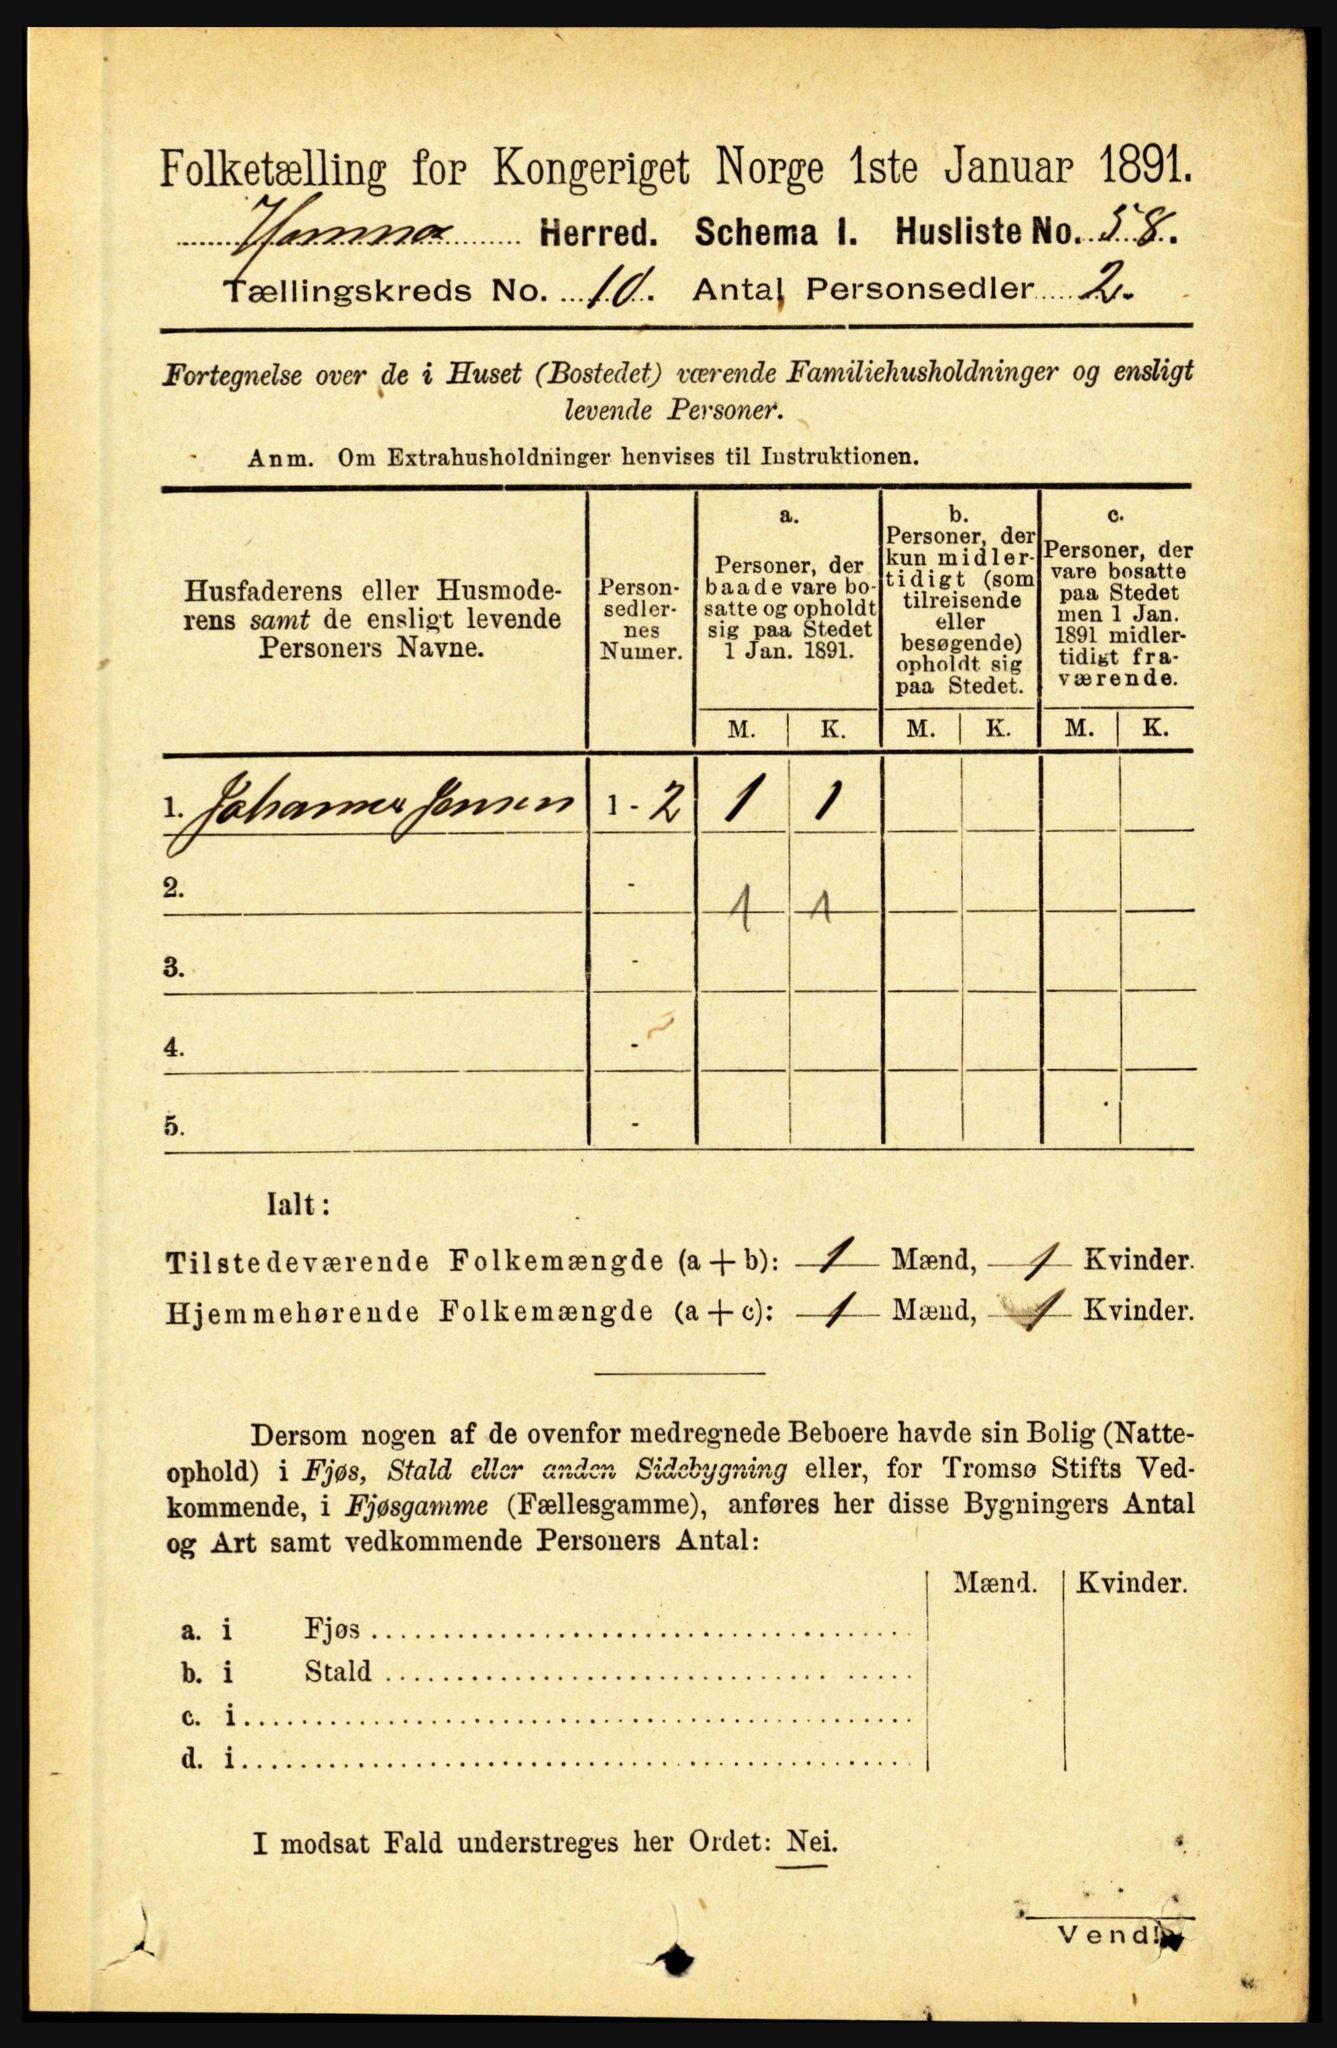 Folketælling for Kongeriget Norge 1ste Januar 1891.
Hamnø Herred. Schema I. Husliste No. 58.
Tællingskreds No. 10. Antal Personsedler 2.
Fortegnelse over de i Huset (Bostedet) værende Familiehusholdninger og ensligt
levende Personer.
Anm. Om Extrahusholdninger henvises til Instruktionen.
Husfaderens eller Husmode-
rens samt de ensligt levende
Personers Navne.
Person-
sedler-
nes
Numer.
a.
Personer, der
baade vare bo-
satte og opholdt
sig paa Stedet
1 Jan. 1891.
b.
Personer, der
kun midler-
tidigt (som
tilreisende
eller
besøgende)
opholdt sig
paa Stedet.
c.
Personer, der
vare bosatte
paa Stedet
men 1 Jan.
1891 midler-
tidigt fra-
værende.
M. K. M. K. M. K.
1. Johannes Jensen 1 - 2 1 1
2. - 1 1
3. -
4. -
5. -
Ialt:
Tilstedeværende Folkemængde (a + b): 1 Mænd, 1 Kvinder.
Hjemmehørende Folkemængde (a + c): 1 Mænd, 1 Kvinder.
Dersom nogen af de ovenfor medregnede Beboere havde sin Bolig (Natte-
ophold) i Fjøs, Stald eller anden Sidebygning eller, for Tromsø Stifts Ved-
kommende, i Fjøsgamme (Fællesgamme), anføres her disse Bygningers Antal
og Art samt vedkommende Personers Antal:
Mænd. Kvinder.
a. i Fjøs
b. i Stald
c. i
d. i
I modsat Fald understreges her Ordet: Nei.
Vend!